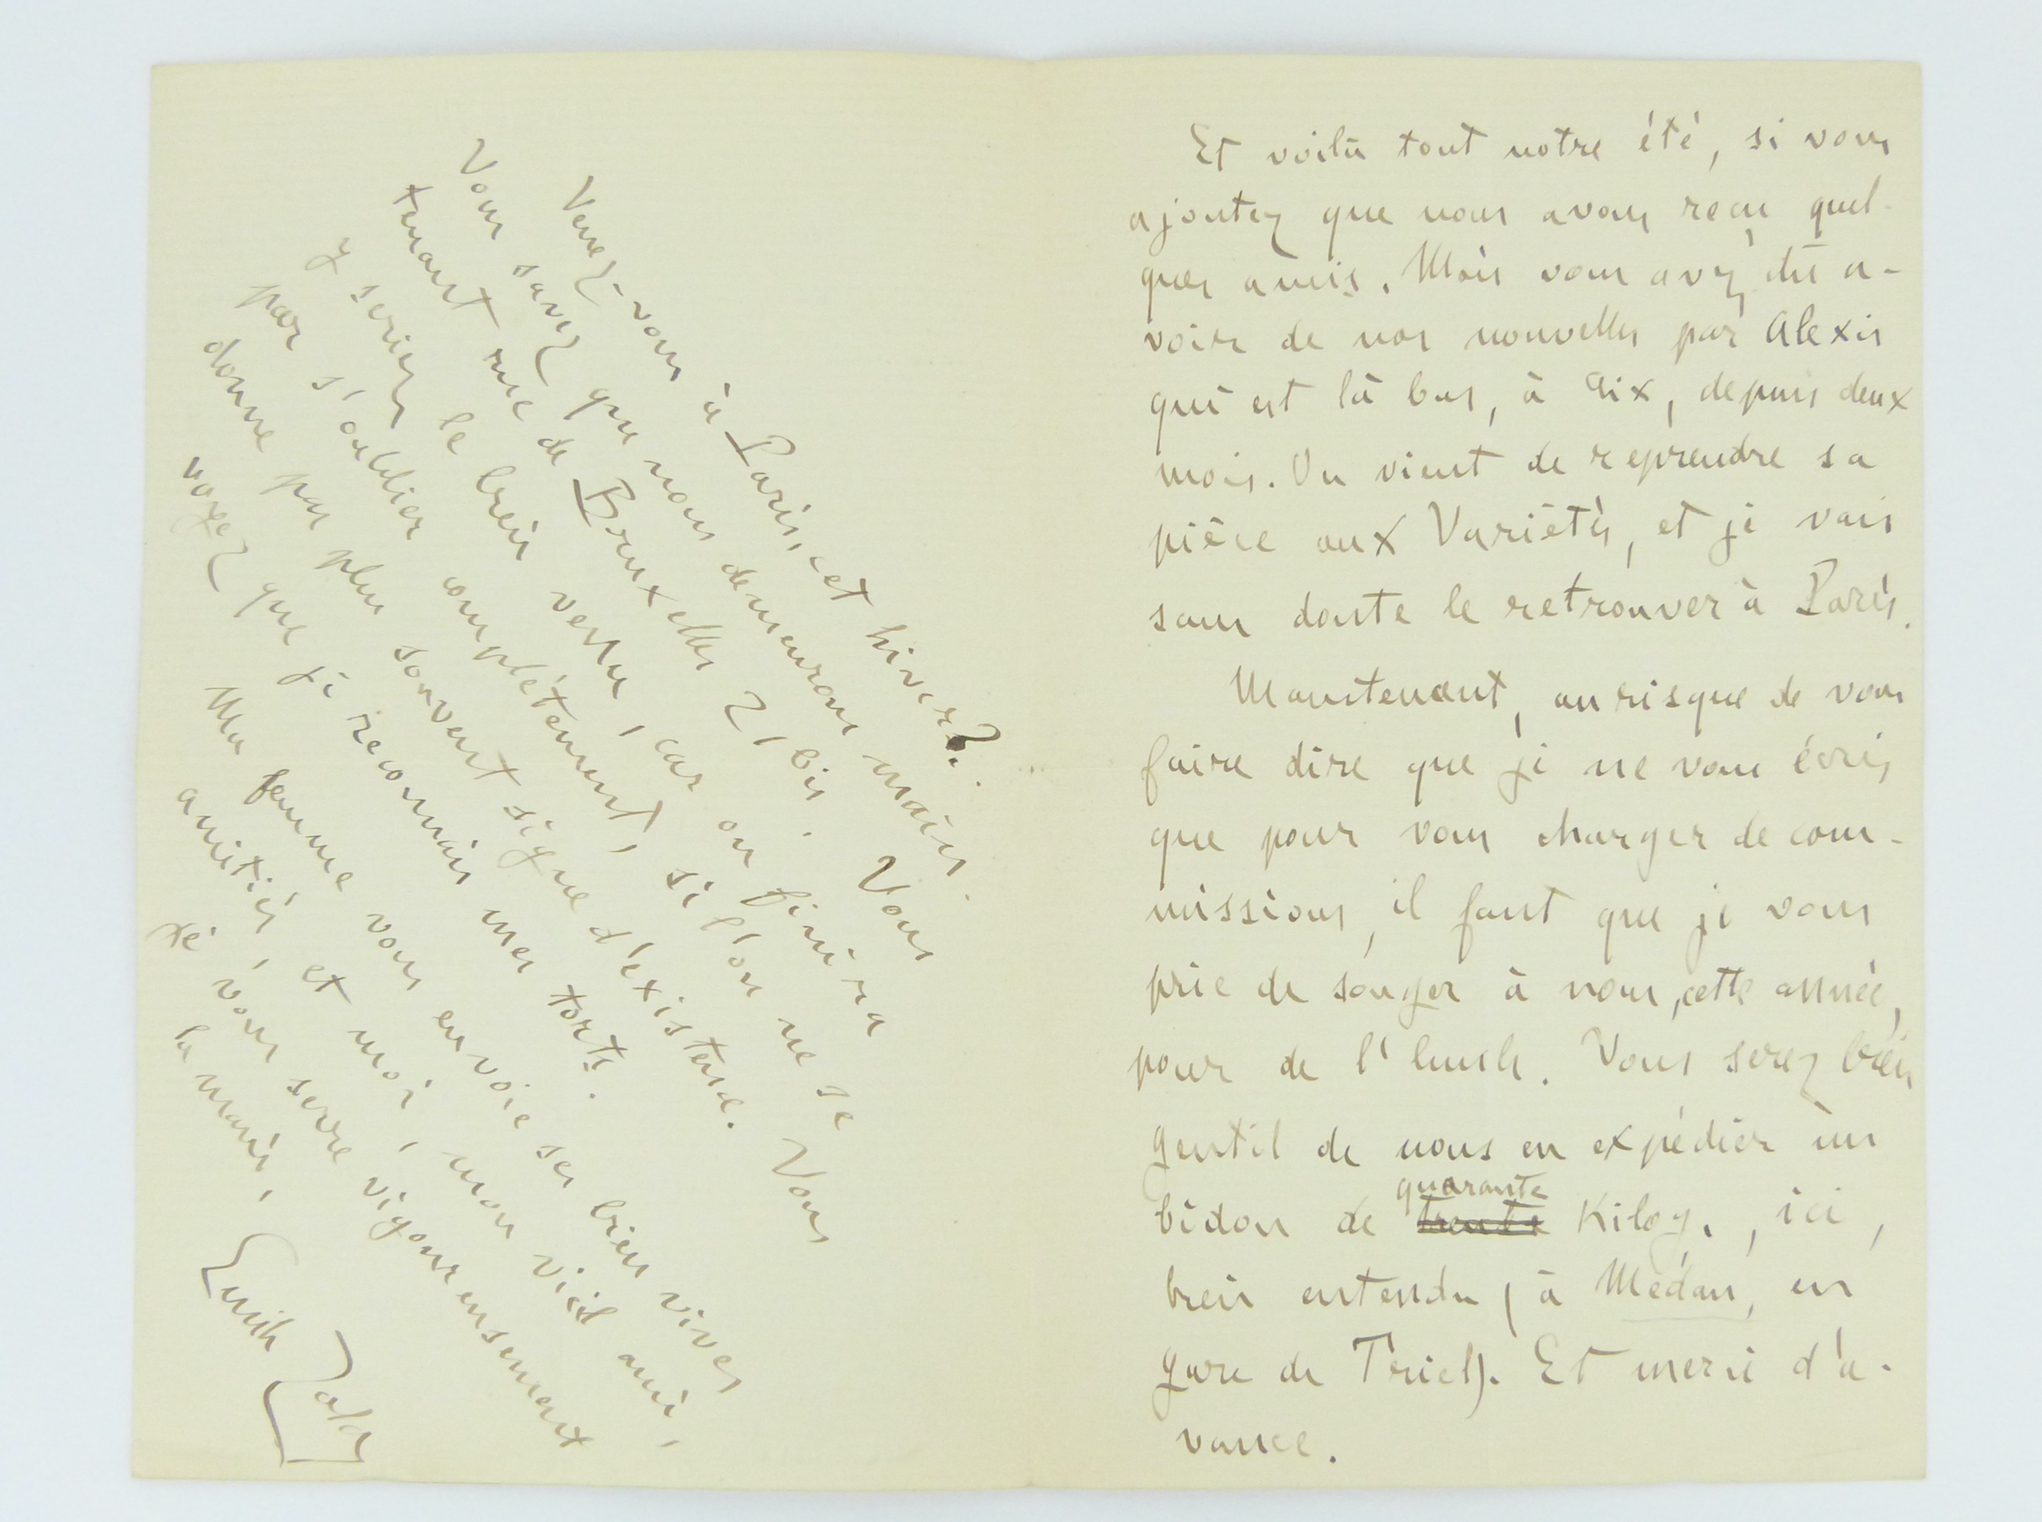 Et voilà tout notre été, si vous
ajoutez que nous avons reçu quel-
ques amis. Mais vous avez dû a-
voir de nos nouvelles par Alexis
qui est là bas, à Aix, depuis deux
mois. On vient de reprendre sa
pièce aux Variétés, et je vais
sans doute le retrouver à Paris.
Maintenant, au risque de vous
faire dire que je ne vous écris
que pour vous charger de com-
missions, il faut que je vous
prie de songer à nous, cette année,
pour de l'huile. Vous serez bien
gentil de nous en expédier un
bidon de trente quarante kilog., ici,
bien entendu (à Médan, en
gare de Triel). Et merci d'a-
vance.
Venez-vous à Paris, cet hiver?
Vous savez que nous demeurons main-
tenant rue de Bruxelles 21 bis. Vous
y seriez le bien venu, car on finira
par s'oublier complètement, si l'on ne se
donne pas plus souvent signe d'existence. Vous
voyez que je reconnais mes torts.
Ma femme vous envoie ses bien vives
amitiés, et moi, mon vieil ami,
je vous serre vigoureusement
la main,
Emile Zola